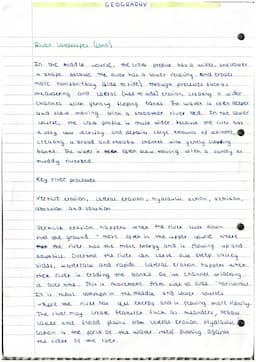 GEOGRAPHY
River landscapes (cont)
In the middle course, the cross profile has a wider, shallower
v-shape because the river has a lower velocity and erodes
more horizontally (side to side) through processes such as
meandering and lateral (side to side) erosion, creating a wider
channel with gently sloping banks. The water is often deeper
and slow moving, with a smoother river bed. In the lower
course, the cross profile is much wider because the river has
a very low velocity and deposits large amounts of sediment,
creating a broad and shallow channel with gently sloping
banks. The water is often slow moving with a sandy or
muddy riverbed.
Key river processes
Vertical erosion, lateral erosion, hydraulic action, attrition,
abrasion and solution
Vertical erosion happens when the river cuts down
into the ground - most often in the upper course where
the river has the most energy and is flowing up and
downhill. Overtime the river can carve out steep valley
sides, waterfalls and rapids. Lateral erosion happens when
the river is eroding the banks of its channel widening
it over time. This is movement from side to side - horizontal
It is most common in the middle and lower courses
where the river has less energy and is flowing more slowly.
The river may create features such as meanders, oxbow
lakes and flood plains from lateral erosion. Hydraulic
action is the force of the water itself pushing against
the sides of the river.